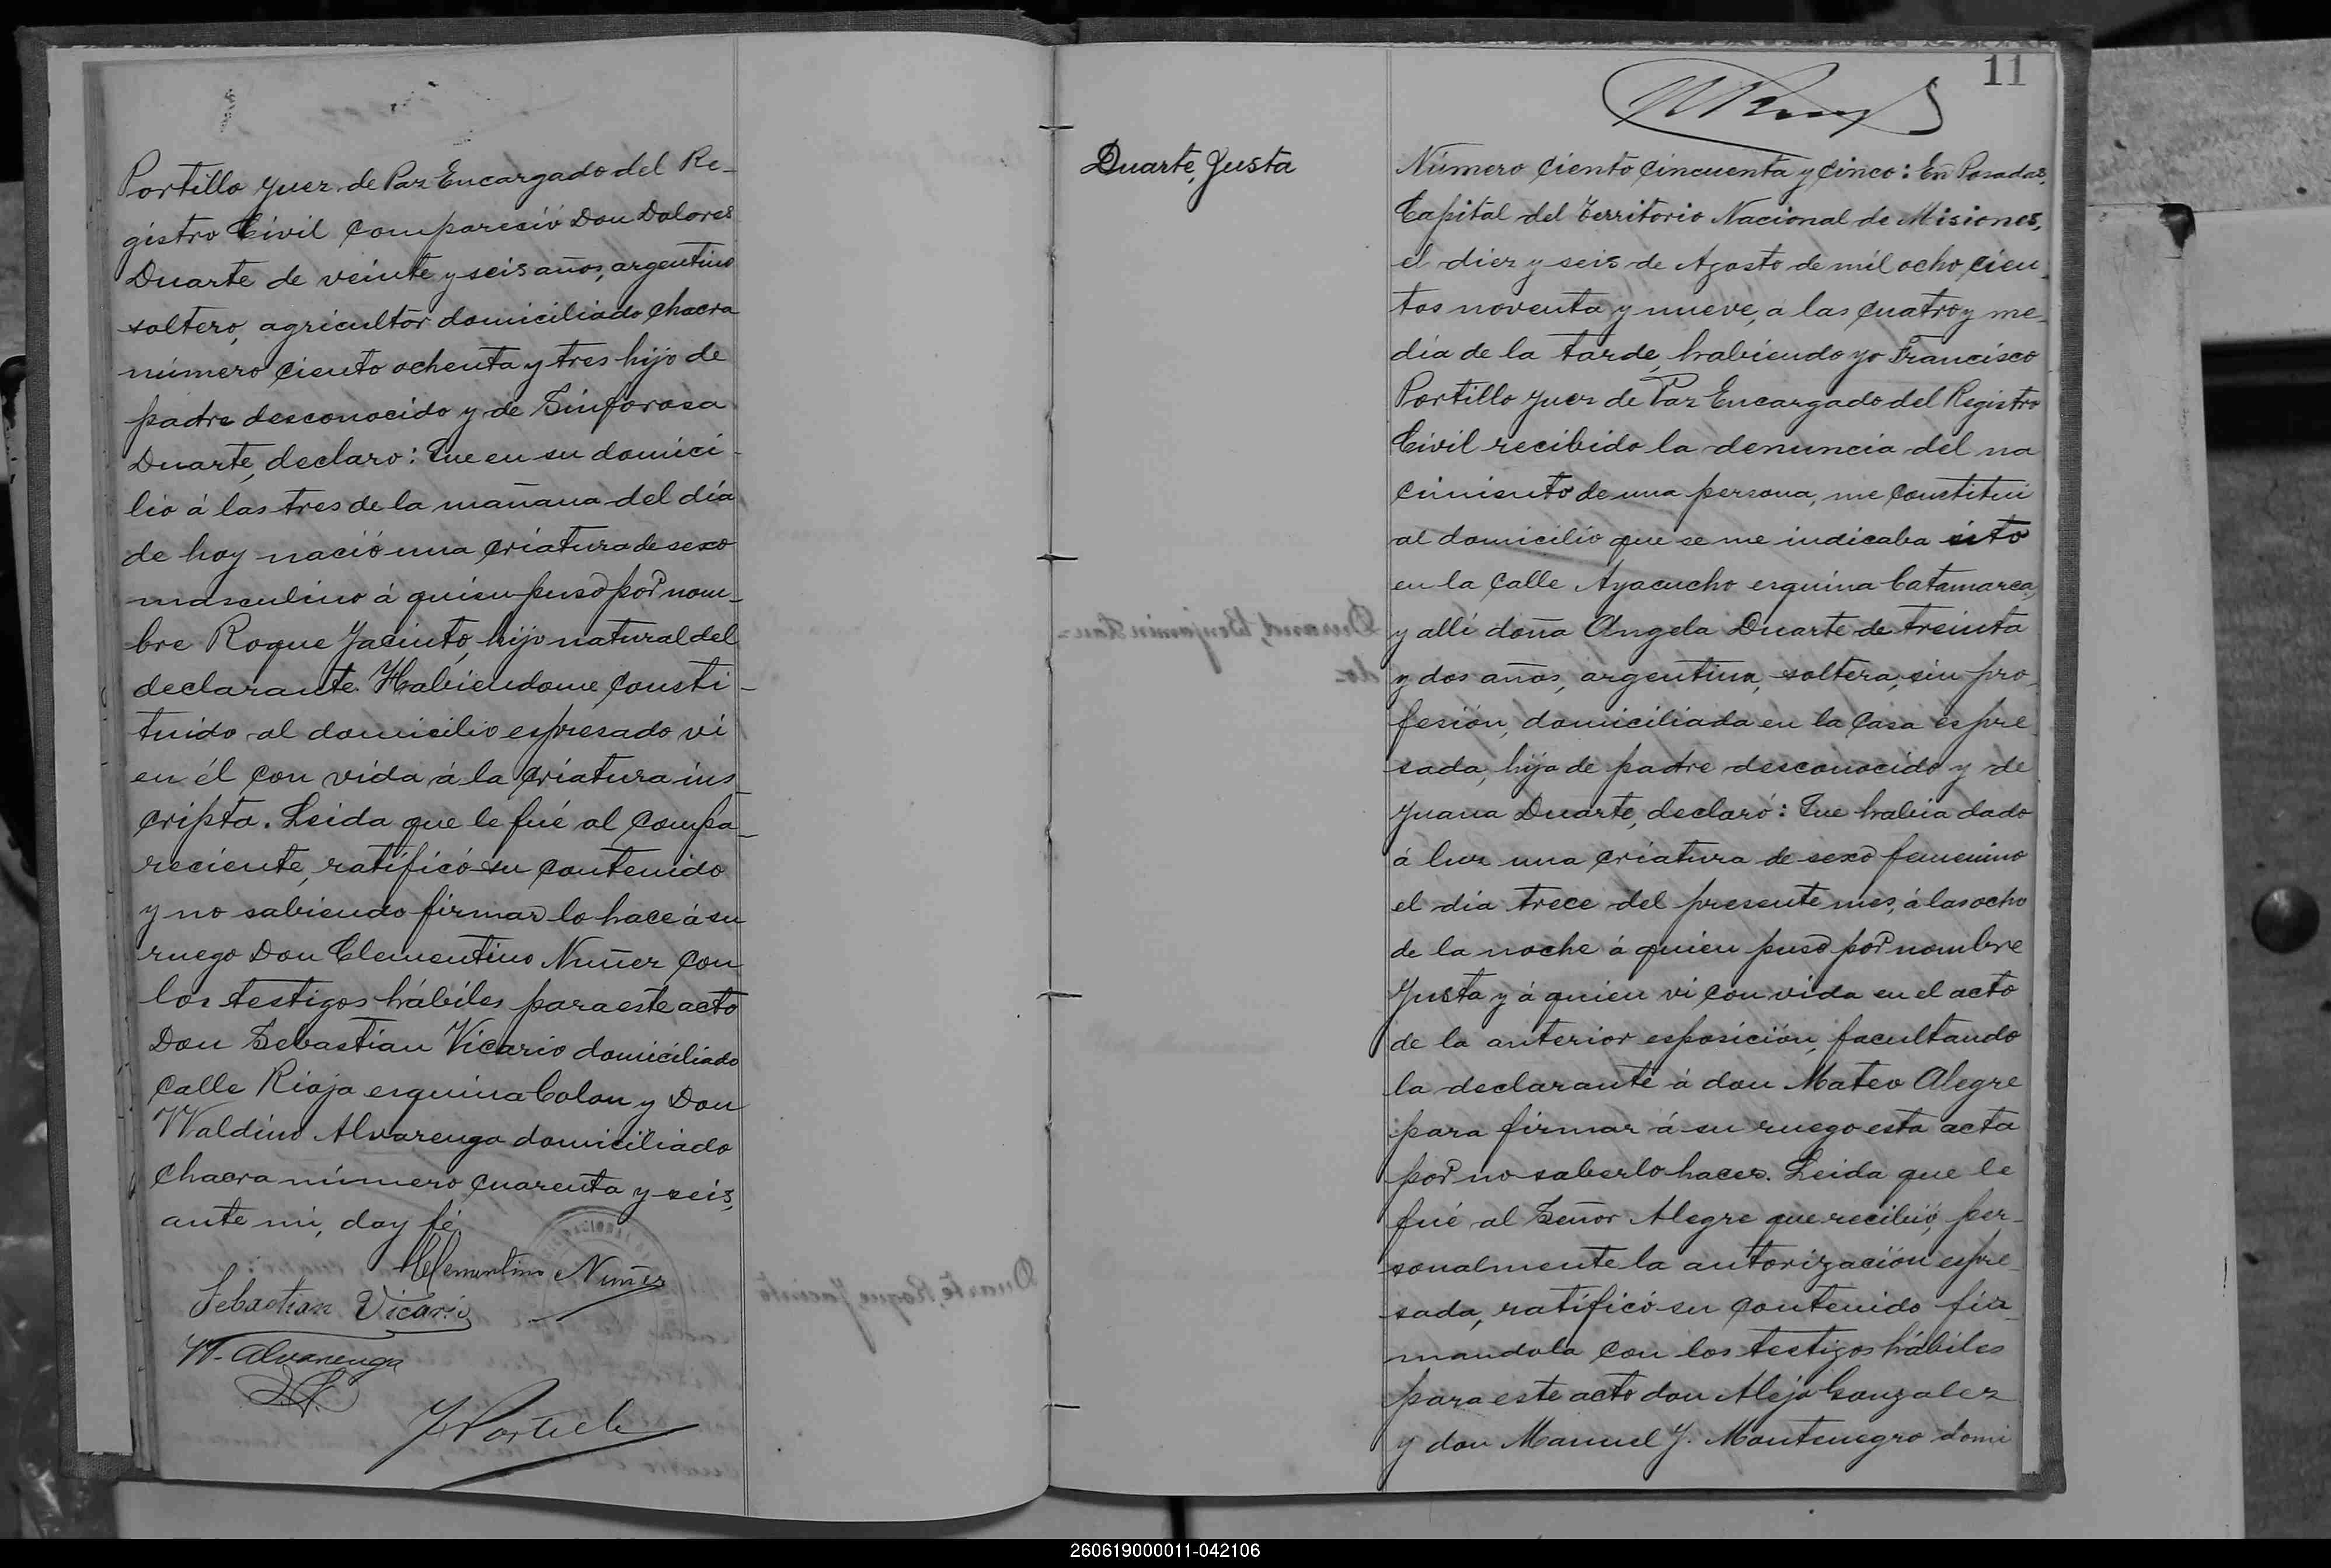 Portillo Juez de Paz Encargado del Re-
gistro Civil compareció Don Dolores
Duarte de veinte y seis años, argentino
soltero, agricultor domiciliado chacra
número ciento ochenta y tres hijo de
padre desconocido y de Sinforosa
Duarte, declaro: Que en su domici-
lio á las tres de la mañana del día
de hoy nació una criatura de sexo
masculino á quien puso por nom-
bre Roque Jacinto, hijo natural del
declarante. Habiendome consti-
tuido al domicilio espresado vi
en él con vida á la criatura ins-
cripta. Leida que le fué al compa-
reciente, ratificó su contenido
y no sabiendo firmar lo hace á su
ruego Don Clementino Nuñez con
los testigos hábiles para este acto
Don Sebastian Vicario domiciliado
calle Rioja esquina Colon y Don
Waldino Alvarenga domiciliado
chacra número cuarenta y seis,
ante mi, doy fé
Clementino Nuñez
Sebastian Vicario
W. Alvarenga
F Portillo
11
Duarte, Justa
Número ciento cincuenta y cinco: En Posadas,
Capital del Territorio Nacional de Misiones,
el diez y seis de Agosto de mil ocho cien-
tos noventa y nueve, a las cuatro y me-
dia de la tarde, habiendo yo Francisco
Portillo Juez de Paz Encargado del Registro
Civil recibido la denuncia del na
cimiento de una persona, me constitui
al domicilio que se me indicaba sito
en la calle Ayacucho esquina Catamarca,
y allí doña Angela Duarte de treinta
y dos años, argentina, soltera, sin pro-
fesión, domiciliada en la casa espre-
sada, hija de padre desconocido y de
Juana Duarte, declaró: Que habia dado
á luz una criatura de sexo femenino
el dia trece del presente mes, á las ocho
de la noche á quien puso por nombre
Justa y á quien vi con vida en el acto
de la anterior esposición, facultando
la declarante á don Mateo Alegre
para firmar á su ruego esta acta
por no saberlo hacer. Leida que le
fué al Señor Alegre que recibió, per-
sonalmente la autorización espre-
sada, ratificó su contenido fir-
mandola con los testigos hábiles
para este acto don Alejo Gonzalez
y don Manuel J. Montenegro domi
260619000011-042106